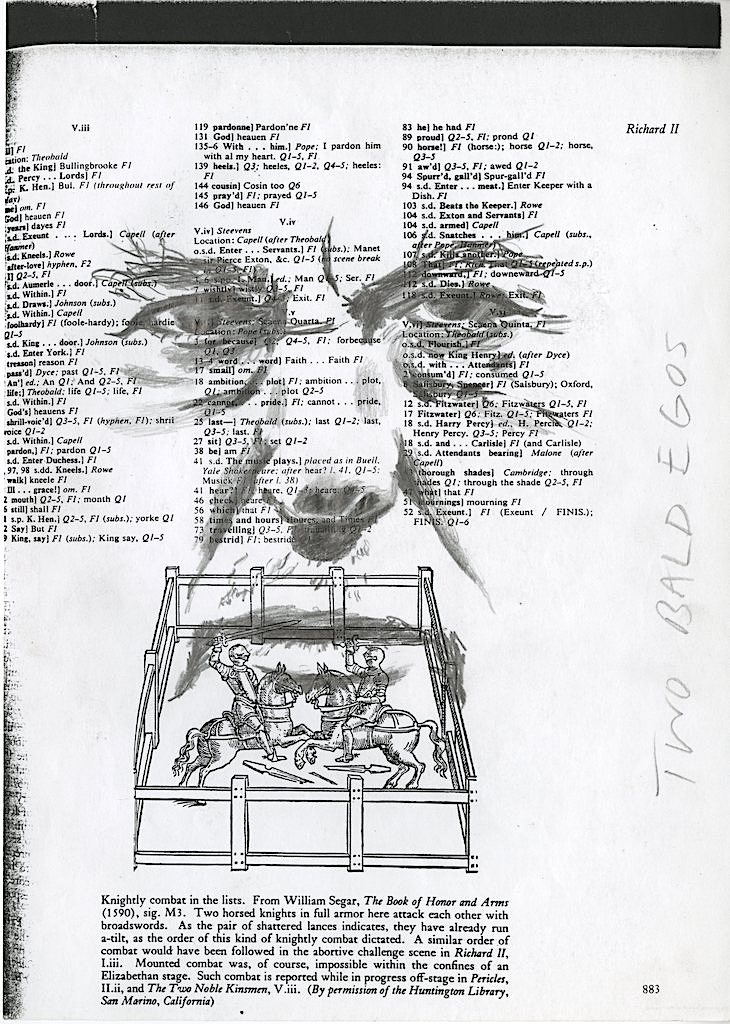 Richard II
V.iii
] F1
cation: Theobald
d. the King] Bullingbrooke F1
d. Percy . . . Lords] F1
p. K. Hen.] Bul. F1 (throughout rest of
me] om. F1
God] heauen F1
years] dayes F1
s.d. Exeunt . . . Lords.] Capell (after
Hanmer)
s.d. Kneels.] Rowe
after-love] hyphen, F2
] Q2-5, F1
s.d. Aumerle . . . door.] Capell (subs.)
s.d. Within.] F1
s.d. Draws.] Johnson (subs.)
s.d. Within.] Capell
foolhardy] F1 (foole-hardy); foole hardie
Q1-5
s.d. King . . . door.] Johnson (subs.)
s.d. Enter York.] F1
treason] reason F1
pass'd] Dyce; past Q1-5, F1
An'] ed.; An Q1; And Q2-5, F1
life;] Theobald; life Q1-5; life, F1
s.d. Within.] F1
God's] heauens F1
shrill-voic'd] Q3-5, F1 (hyphen, F1); shril
voice Q1-2
s.d. Within.] Capell
pardon,] F1; pardon Q1-5
s.d. Enter Duchess.] F1
, 97, 98 s.dd. Kneels.] Rowe
walk] kneele F1
Ill . . . grace!] om. F1
2 mouth] Q2-5, F1; month Q1
6 still] shall F1
1 s.p. K. Hen.] Q2-5, F1 (subs.); yorke Q1
2 Say] But F1
9 King, say] F1 (subs.); King say, Q1-5
119 pardonne] Pardon'ne F1
131 God] heauen F1
135-6 With . . . him.] Pope; I pardon him
with al my heart. Q1-5, F1
139 heels.] Q3; heeles, Q1-2, Q4-5; heeles:
F1
144 cousin] Cosin too Q6
145 pray'd] F1; prayed Q1-5
146 God] heauen F1
V.iv
V.iv] Steevens
Location: Capell (after Theobald)
o.s.d. Enter . . . Servants.] F1 (subs.); Manet
sir Pierce Exton, &c. Q1-5 (no scene break
in Q1-5, F1)
Man] ed.; Man Q1-5; Ser. F1
7 wishtly] wistly Q3-5, F1
11 s.d. Exeunt.] Exit. F1
V.v
V.v] Steevens; Scaena Quarta. F1
Location: Pope (subs.)
3 for because] Q2, Q4-5, F1; forbecause
Q1, Q3
13-4 word . . . word] Faith . . . Faith F1
17 small] om. F1
18 ambition . . . plot] F1; ambition . . . plot,
Q1; ambition . . . plot Q2-5
22 cannot . . . pride.] F1; cannot . . . pride,
Q1-5
25 last—] Theobald (subs.); last Q1-2; last,
Q3-5; last. F1
27 sit] Q3-5, F1; set Q1-2
38 be] am F1
41 s.d. The music plays.] placed as in Buell,
Yale Shakespeare; after hear? l. 41, Q1-5;
Musick F1 (after l. 38)
46 check] heare F1
56 which] that F1
58 times and hours] Houres, and Times F1
79 bestrid] F1; bestride
83 he] he had F1
89 proud] Q2-5, F1; prond Q1
90 horse!] F1 (horse:); horse Q1-2; horse,
Q3-5
91 aw'd] Q3-5, F1; awed Q1-2
94 Spurr'd, gall'd] Spur-gall'd F1
94 s.d. Enter . . . meat.] Enter Keeper with a
Dish. F1
103 s.d. Beats the Keeper.] Rowe
104 s.d. Exton and Servants] F1
104 s.d. armed] Capell
106 s.d. Snatches . . . him.] Capell (subs.,
after Pope, Hanmer)
107 s.d. Kills another.] Pope
112 downward.] F1; downeward Q1-5
112 s.d. Dies.] Rowe
118 s.d. Exeunt.] Rowe; Exit. F1
V.vi
V.vi] Steevens; Scaena Quinta. F1
Location: Theobald (subs.)
o.s.d. Flourish.] F1
o.s.d. now King Henry] ed. (after Dyce)
o.s.d. with . . . Attendants] F1
consum'd] F1; consumed Q1-5
Salisbury, Spencer] F1 (Salsbury); Oxford,
Salisbury, Q1-5
12 s.d. Fitzwater] Q6; Fitzwaters Q1-5, F1
17 Fitzwater] Q6; Fitz. Q1-5; Fitzwaters F1
18 s.d. Harry Percy] ed., H. Percie. Q1-2;
Henry Percy. Q3-5; Percy F1
18 s.d. and . . . Carlisle] F1 (and Carlisle)
29 s.d. Attendants bearing] Malone (after
Capell)
43 thorough shades] Cambridge; through
shades Q1; through the shade Q2-5, F1
what] that F1
51 mournings] mourning F1
52 s.d. Exeunt.] F1 (Exeunt / FINIS.);
FINIS. Q1-6
TWO BALD EGOS
Knightly combat in the lists. From William Segar, The Book of Honor and Arms
(1590), sig. M3. Two horsed knights in full armor here attack each other with
broadswords. As the pair of shattered lances indicates, they have already run
a-tilt, as the order of this kind of knightly combat dictated. A similar order of
combat would have been followed in the abortive challenge scene in Richard II,
I.iii. Mounted combat was, of course, impossible within the confines of an
Elizabethan stage. Such combat is reported while in progress off-stage in Pericles,
II.ii, and The Two Noble Kinsmen, V.iii. (By permission of the Huntington Library,
San Marino, California)
883